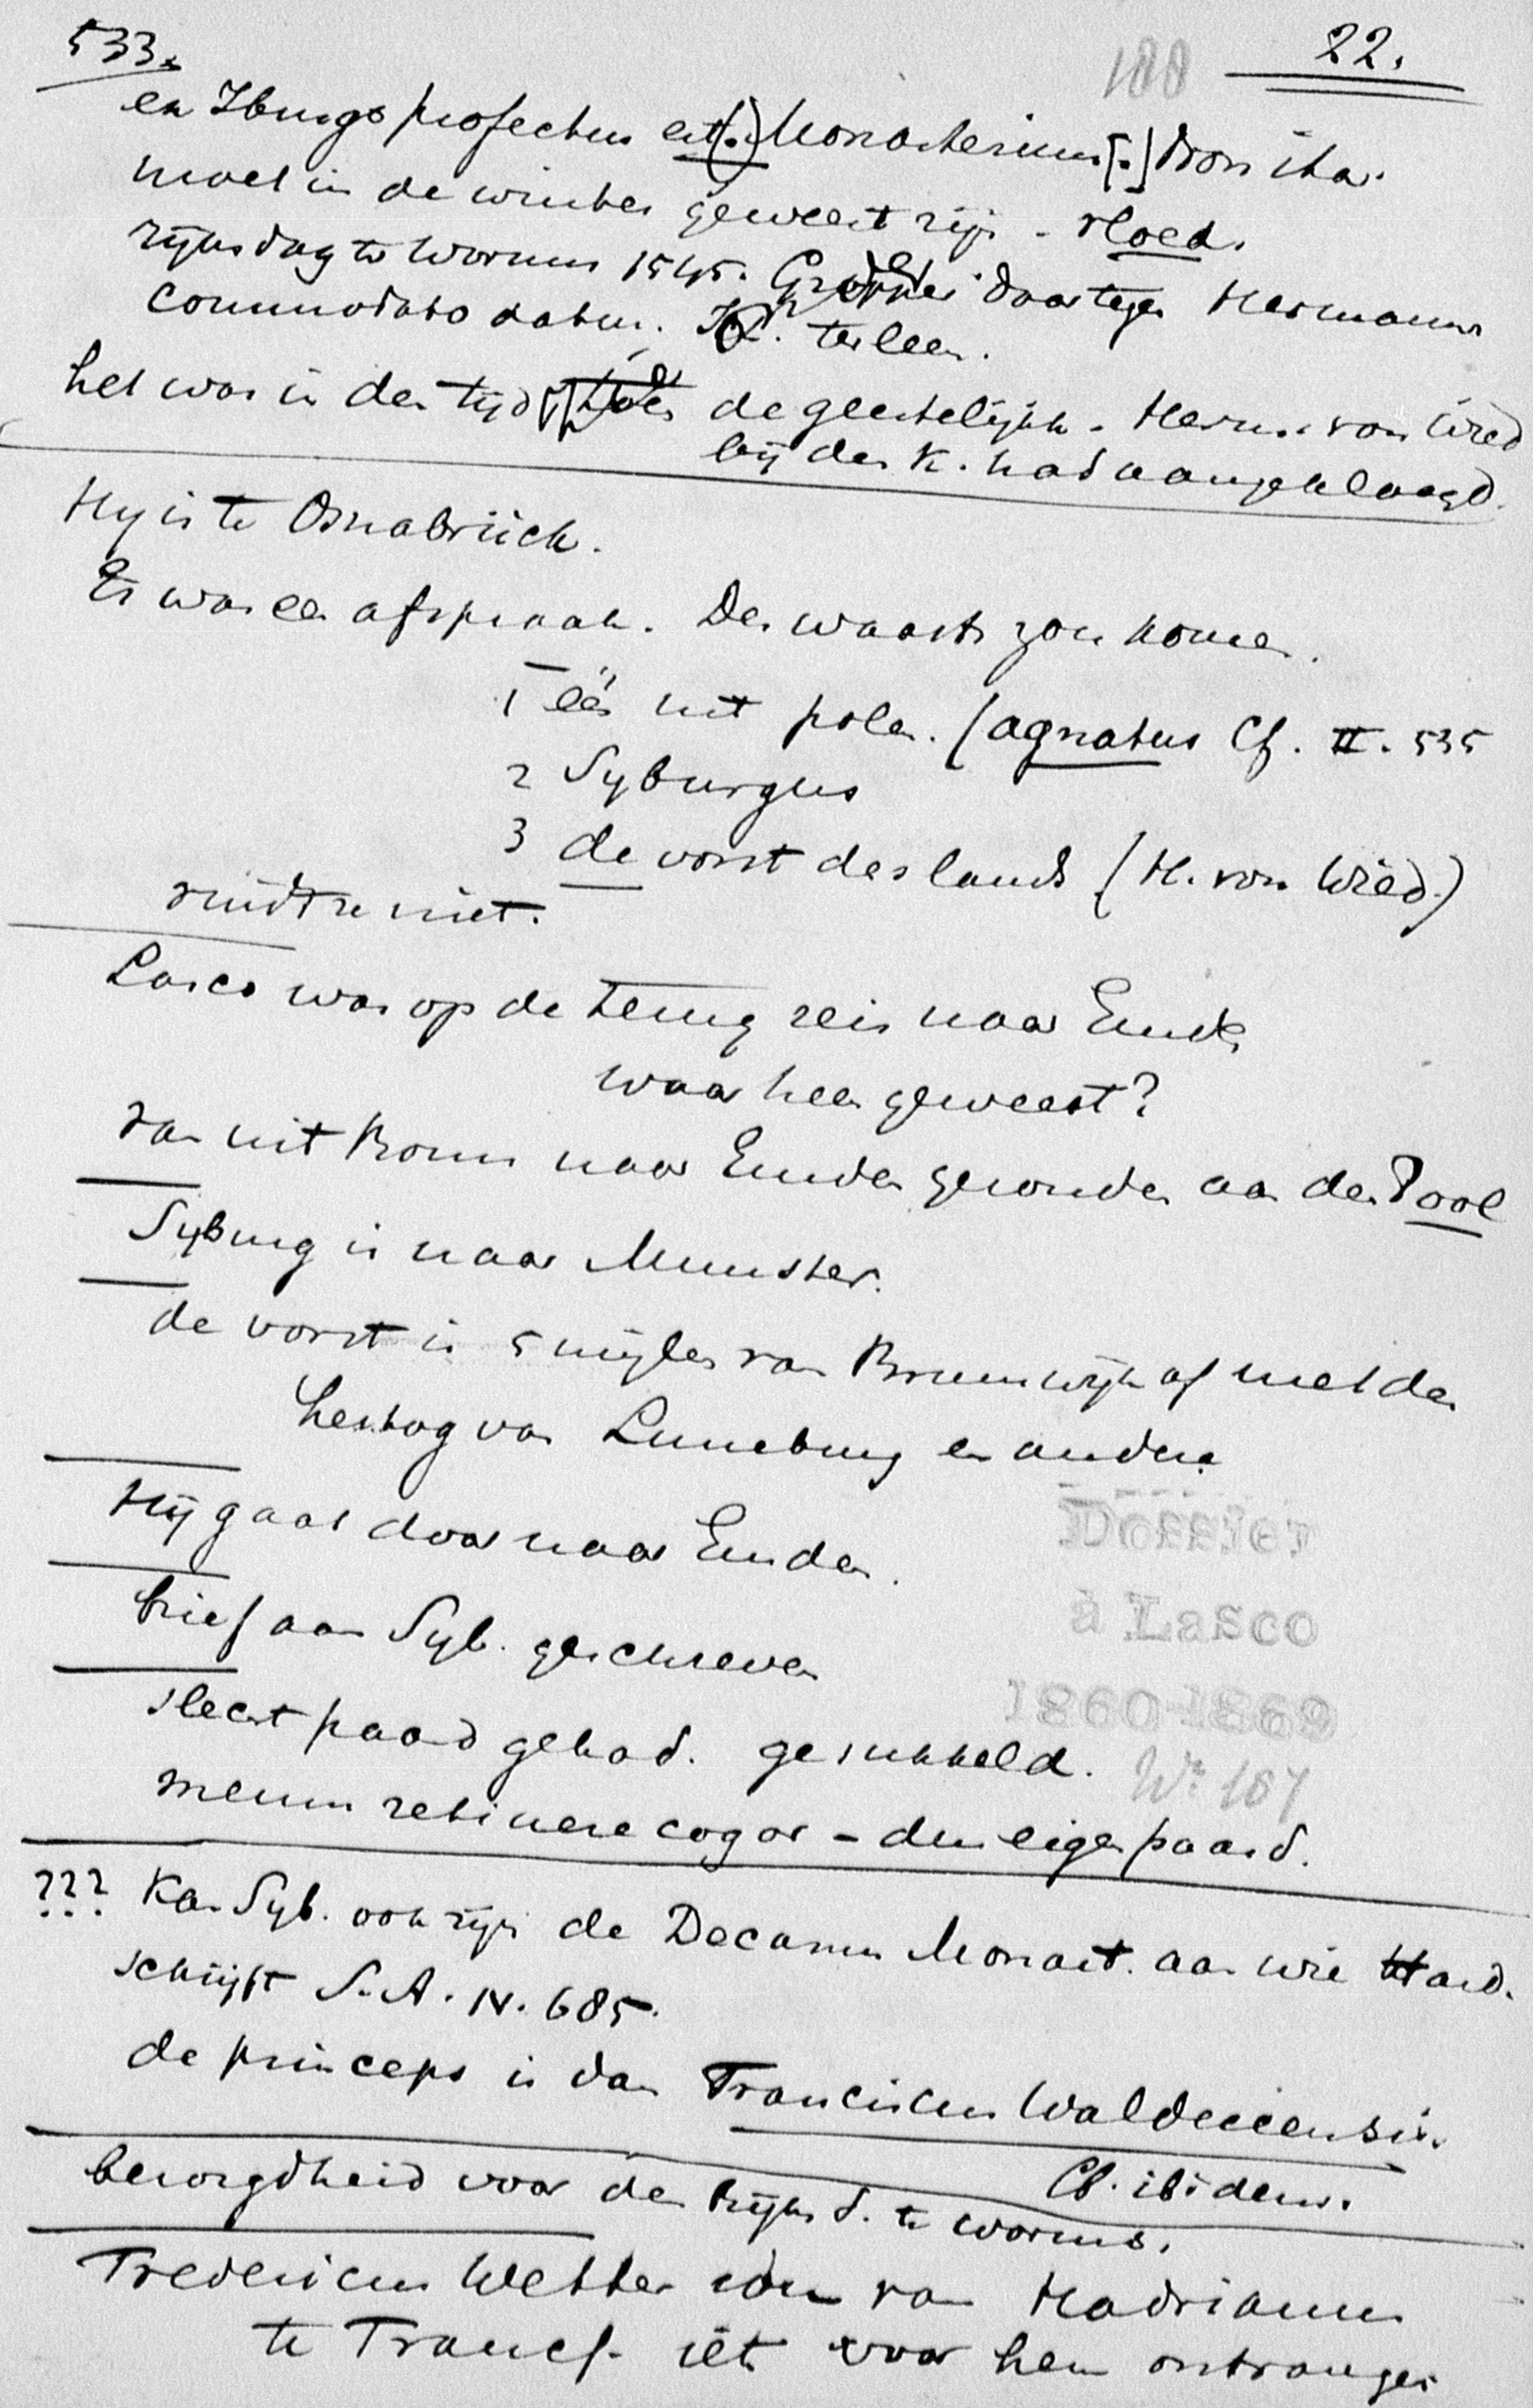 533.
188
22.
ex Iburgo profectus est(.) Monasterium[.] Don
moet in de winter geweest zijn - Hoed.
rijksdag te Worms 1545. daartegen Hermannus
commodato datus. ter leen.
het was in den tijd de geestelijkh. Herm. von Wied
bij den K. had aangeklaagd.
Hij is te Osnabrück.
Er was een afspraak. Derwaarts zou komen.
1 één uit polen. (agnatus Cf. II. 535
2 Syburgus
3 de vorst des lands (H. von Wied.)
vindt ze niet.
Lasco was op de terug reis naar Emd.
waar heen geweest?
van uit Bonn naar Emden gezonden aan den Pool
Syburg is naar Munster.
de vorst is 5 mijlen van Brunswijk af met den
hertog van Luneburg en andere
Hij gaat door naar Emden.
brief aan Syb. geschreven
slecht paard gehad. gesukkeld.
meum retinere cogor - den eigen paard.
??? Kan Syb. ook zijn de Decanus Monast. aan wie Hard.
schrijft S. A. N. 685.
de princeps is dan Franciscus Waldeccensis.
Cf. ibidem.
bezorgdheid voor den Rijksd. te worms.
Fredericus Wetter van Hadrianus
te Francf. iets voor hem ontvangen
Dossier
à Lasco
1860-1869
No 187